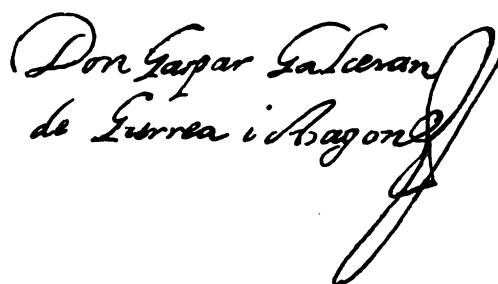 Don Gaspar Galceran
de Gurrea i Aragon